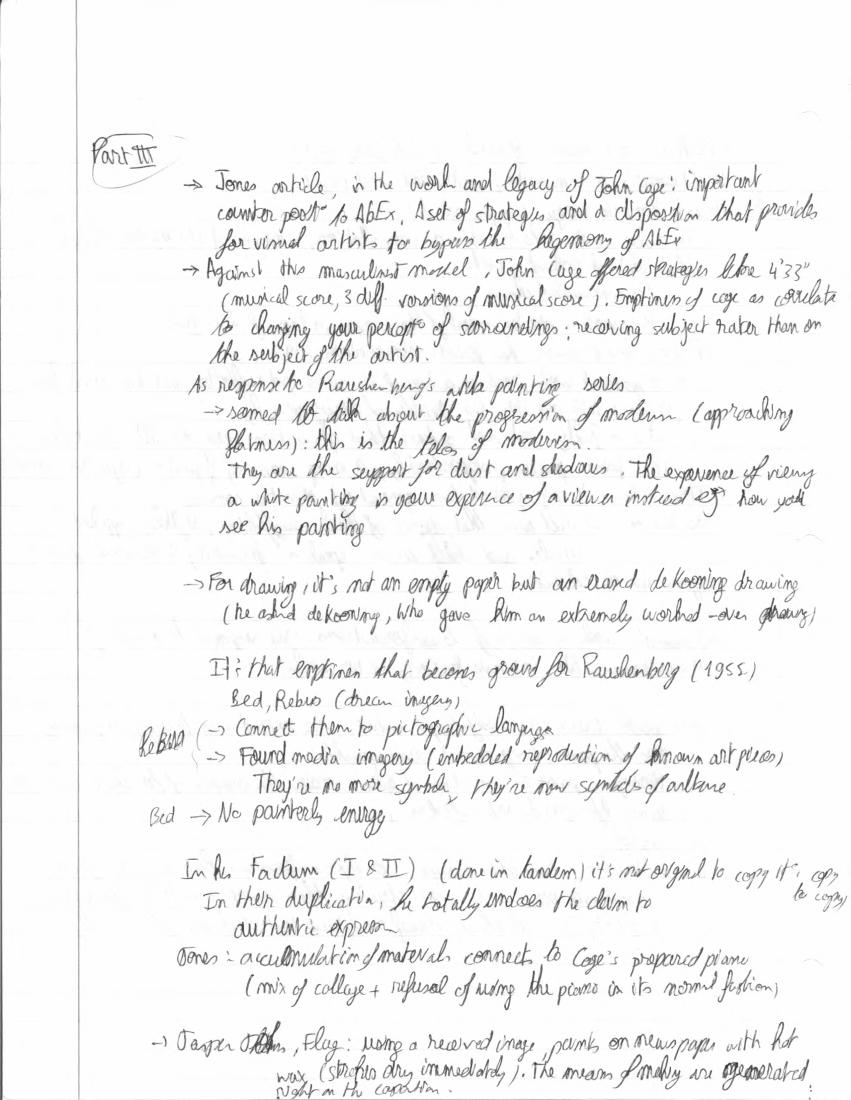 Part III
→ Jones article, in the work and legacy of John Cage: important
counter point to AbEx. A set of strategies and a disposition that provides
for visual artists to bypass the hegemony of AbEx
→ Against this masculinist model, John Cage offered strategies like 4'33"
(musical score, 3 diff. versions of musical score). Emptiness of cage as correlate
to changing your percept° of surroundings; receiving subject rather than on
the subject of the artist.
As response to Raushenberg's white painting series
→ seemed to talk about the progression of modern (approaching
flatness): this is the telos of modernism.
They are the support for dust and shadows. The experience of viewing
a white painting is your experience of a viewer instead of how you
see his painting
→ For drawing, it's not an empty paper but an erased deKooning drawing
(he asked deKooning, who gave him an extremely worked-over drawing)
It's that emptiness that becomes ground for Raushenberg (1955)
Bed, Rebus (dream imagery)
Rebus → Connect them to pictographic language
→ Found media imagery (embedded reproduction of known art pieces)
They're no more symbols, they're now symbols of culture
Bed → No painterly energy
In his Factum (I & II) (done in tandem) it's not original to copy it, copy
to copy)
In their duplication, he totally undoes the claim to
authentic expression
Jones: accumulation of materials connects to Cage's prepared piano
(mix of collage + refusal of using the piano in its normal fashion)
→ Jasper Johns, Flag: using a received image, paints on newspaper with hot
wax (strokes dry immediately). The means of making are generated
right on the